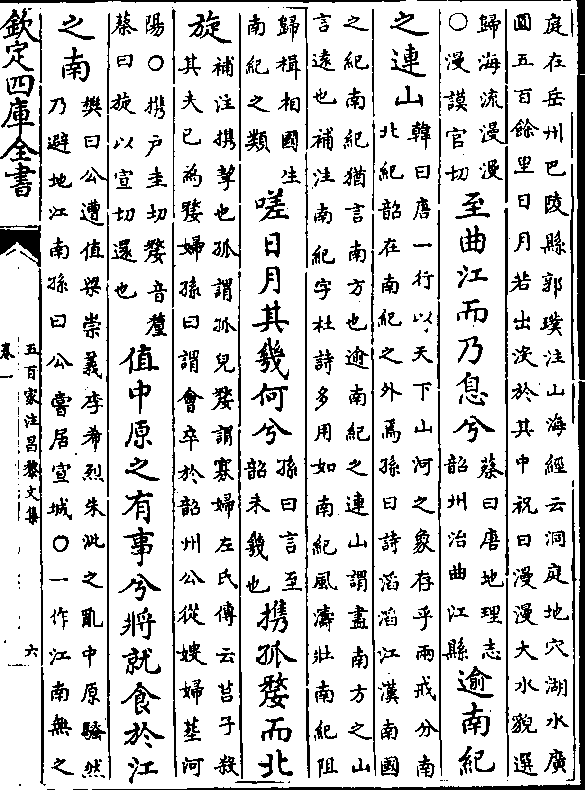 庭在岳州巴陵縣郭璞注山海經云洞庭地穴湖水廣
圓五百餘里日月若出没於其中祝曰漫漫大水貌選
歸海流漫漫
○漫謨官切
至曲江而乃息兮
蔡曰唐地理志
韶州治曲江縣
逾南紀
之連山
韓曰唐一行以天下山河之象存乎兩戒分南
北紀韶在南紀之外焉孫曰詩滔滔江漢南國
之紀南紀猶言南方也逾南紀之連山謂盡南方之山
言遠也補注南紀字杜詩多用如南紀風濤壯南紀阻
歸楫相國生
南紀之類
嗟日月其幾何兮
孫曰言至
韶未幾也
携孤嫠而北
旋
補注携挈也孤謂孤兒嫠謂寡婦左氏傳云莒子殺
其夫已為嫠婦孫曰謂會卒於韶州公從嫂婦葬河
陽○携户圭切嫠音釐
蔡曰旋以宣切還也
值中原之有事兮將就食於江
之南
樊曰公遭值梁崇義李希烈朱泚之亂中原騷然
乃避地江南孫曰公嘗居宣城○一作江南無之
欽定四庫全書
五百家注昌黎文集
卷一
六